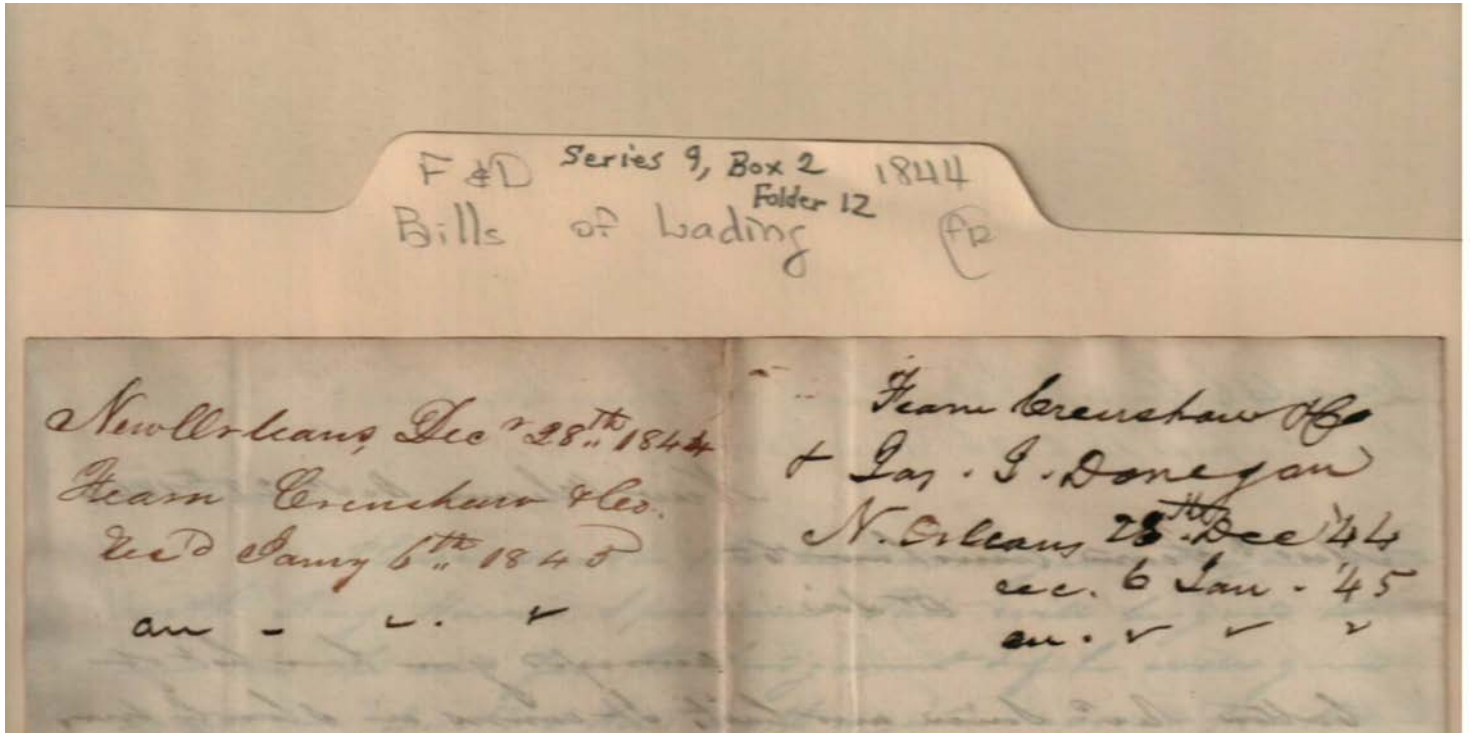 F & D Series 9, Box 2 1844
Folder 12
Bills of Lading
New Orleans, Decr 28th 1844
Fearn Crenshaw & Co.
Rec'd Jany 6th 1845
an - " . "
Fearn Crenshaw & Co
& Jas. J. Donegan
N. Orleans 28th Dec '44
rec. 6 Jan - '45
an. " " "